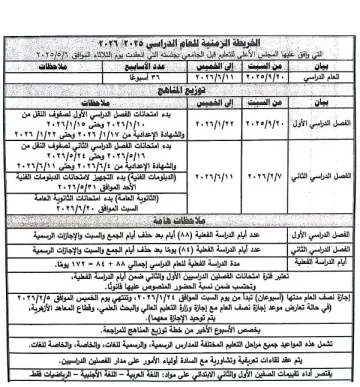 الخريطة الزمنية للعام الدراسي ٢٠٢٥/ ٢٠٢٦
التي وافق عليها المجلس الأعلى للتعليم قبل الجامعي بجلسته التي انعقدت يوم الثلاثاء الموافق ٢٠٢٥/٥/٦
بيان من السبت إلى الخميس عدد الأسابيع ملاحظات
العام الدراسي ٢٠٢٥/٩/٢٠ ٢٠٢٦/٦/١١ ٣٦ أسبوعًا
توزيع المناهج
بيان من السبت إلى الخميس ملاحظات
الفصل الدراسي الأول ٢٠٢٥/٩/٢٠ ٢٠٢٦/١/٢٢
بدء امتحانات الفصل الدراسي الأول لصفوف النقل من
٢٠٢٦/١/١٠ حتى ٢٠٢٦/١/١٥
والشهادة الإعدادية من ١/١٧ وحتى ٢٠٢٦/١/٢٢
الفصل الدراسي الثاني ٢٠٢٦/٢/٧ ٢٠٢٦/٦/١١
بدء امتحانات الفصل الدراسي الثاني لصفوف النقل من
٢٠٢٦/٥/١٦ وحتى ٢٠٢٦/٥/٢٤
والشهادة الإعدادية من ٦/٤ وحتى ٢٠٢٦/٦/١١
(الدبلومات الفنية) بدء التجهيز لامتحانات الدبلومات الفنية
الأحد الموافق ٥/٣١
(الثانوية العامة) بدء امتحانات الثانوية العامة
السبت الموافق ٢٠٢٦/٦/٢٠
ملاحظات هامة
الفصل الدراسي الأول عدد أيام الدراسة الفعلية (٨٨) أيام بعد حذف أيام الجمع والسبت والإجازات الرسمية
الفصل الدراسي الثاني عدد أيام الدراسة الفعلية (٨٤) يومًا بعد حذف أيام الجمع والسبت والإجازات الرسمية
أيام الدراسة الفعلية مدة الدراسة الفعلية للعام الدراسي إجمالي ٨٨ + ٨٤ = ١٧٢ يومًا.
تعتبر فترة امتحانات الفصلين الدراسيين الأول والثاني ضمن أيام الدراسة الفعلية،
وتحتسب ضمن نسبة الحضور المنصوص عليها قانونًا.
إجازة نصف العام مدتها (أسبوعان) تبدأ من يوم السبت الموافق ٢٠٢٦/١/٢٤، وتنتهي يوم الخميس الموافق ٢٠٢٦/٢/٥
(في حالة تعارض موعد إجازة نصف العام مع إجازة وزارة التعليم العالي والبحث العلمي، وقطاع المعاهد الأزهرية،
يتم توحيد الإجازة معهما).
يخصص الأسبوع الأخير من خطة توزيع المناهج للمراجعة.
تشمل هذه المواعيد جميع مراحل التعليم المختلفة للمدارس الرسمية، والرسمية للغات، والخاصة، والخاصة للغات.
يتم عقد لقاءات تعريفية وتشاورية مع السادة أولياء الأمور على مدار الفصلين الدراسيين.
يقتصر أداء تقييمات الصفين الأول والثاني الابتدائي على مواد: اللغة العربية - اللغة الأجنبية - الرياضيات فقط.